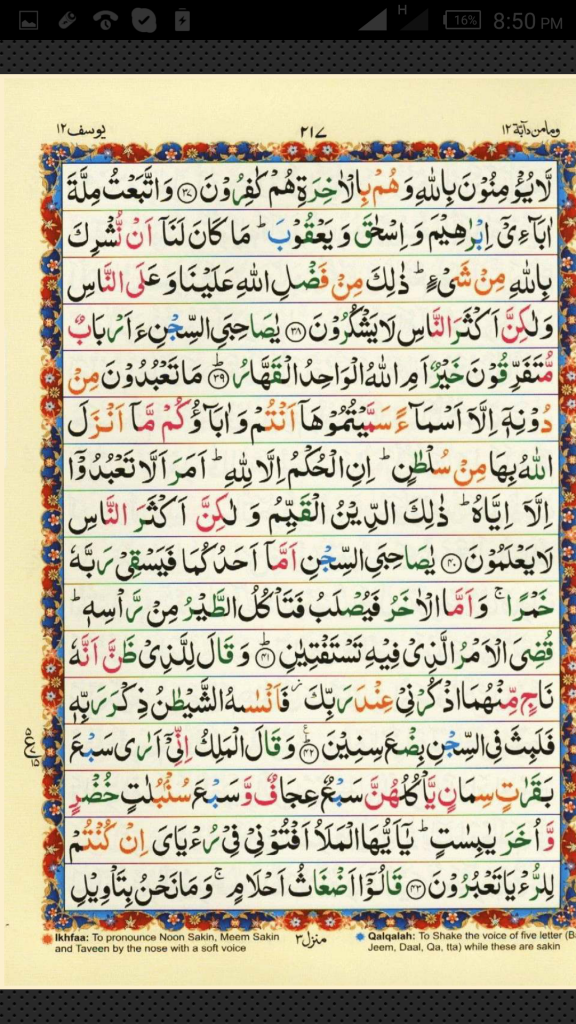 H 16% 8:50 PM
ومامن دآبة ١٢ ٢١٧ يوسف ١٢
لَّا يُؤْمِنُوْنَ بِاللّٰهِ وَهُمْ بِالْاٰخِرَةِ هُمْ كٰفِرُوْنَ ﴿٣٧﴾ وَاتَّبَعْتُ مِلَّةَ
اٰبَآءِيْۤ اِبْرٰهِيْمَ وَ اِسْحٰقَ وَ يَعْقُوْبَ ؕ مَا كَانَ لَنَاۤ اَنْ نُّشْرِكَ
بِاللّٰهِ مِنْ شَيْءٍ ؕ ذٰلِكَ مِنْ فَضْلِ اللّٰهِ عَلَيْنَا وَ عَلَى النَّاسِ
وَلٰكِنَّ اَكْثَرَ النَّاسِ لَا يَشْكُرُوْنَ ﴿٣٨﴾ يٰصَاحِبَيِ السِّجْنِ ءَاَرْبَابٌ
مُّتَفَرِّقُوْنَ خَيْرٌ اَمِ اللّٰهُ الْوَاحِدُ الْقَهَّارُ ﴿٣٩﴾ؕ مَا تَعْبُدُوْنَ مِنْ
دُوْنِهٖۤ اِلَّاۤ اَسْمَآءً سَمَّيْتُمُوْهَاۤ اَنْتُمْ وَ اٰبَآؤُكُمْ مَّاۤ اَنْزَلَ
اللّٰهُ بِهَا مِنْ سُلْطٰنٍ ؕ اِنِ الْحُكْمُ اِلَّا لِلّٰهِ ؕ اَمَرَ اَلَّا تَعْبُدُوْۤا
اِلَّاۤ اِيَّاهُ ؕ ذٰلِكَ الدِّيْنُ الْقَيِّمُ وَ لٰكِنَّ اَكْثَرَ النَّاسِ
لَا يَعْلَمُوْنَ ﴿٤٠﴾ يٰصَاحِبَيِ السِّجْنِ اَمَّاۤ اَحَدُكُمَا فَيَسْقِيْ رَبَّهٗ
خَمْرًا ۚ وَ اَمَّا الْاٰخَرُ فَيُصْلَبُ فَتَاْكُلُ الطَّيْرُ مِنْ رَّاْسِهٖ ؕ
قُضِيَ الْاَمْرُ الَّذِيْ فِيْهِ تَسْتَفْتِيٰنِ ﴿٤١﴾ؕ وَ قَالَ لِلَّذِيْ ظَنَّ اَنَّهٗ
نَاجٍ مِّنْهُمَا اذْكُرْنِيْ عِنْدَ رَبِّكَ ؗ فَاَنْسٰىهُ الشَّيْطٰنُ ذِكْرَ رَبِّهٖ
فَلَبِثَ فِي السِّجْنِ بِضْعَ سِنِيْنَ ﴿٤٢﴾ وَ قَالَ الْمَلِكُ اِنِّيْۤ اَرٰى سَبْعَ
بَقَرٰتٍ سِمَانٍ يَّاْكُلُهُنَّ سَبْعٌ عِجَافٌ وَّ سَبْعَ سُنْۢبُلٰتٍ خُضْرٍ
وَّ اُخَرَ يٰبِسٰتٍ ؕ يٰۤاَيُّهَا الْمَلَاُ اَفْتُوْنِيْ فِيْ رُءْيَايَ اِنْ كُنْتُمْ
لِلرُّءْيَا تَعْبُرُوْنَ ﴿٤٣﴾ قَالُوْۤا اَضْغَاثُ اَحْلَامٍ ۚ وَ مَا نَحْنُ بِتَاْوِيْلِ
منزل ٣
Ikhfaa: To pronounce Noon Sakin, Meem Sakin
and Taveen by the nose with a soft voice
Qalqalah: To Shake the voice of five letter (B
Jeem, Daal, Qa, tta) while these are sakin